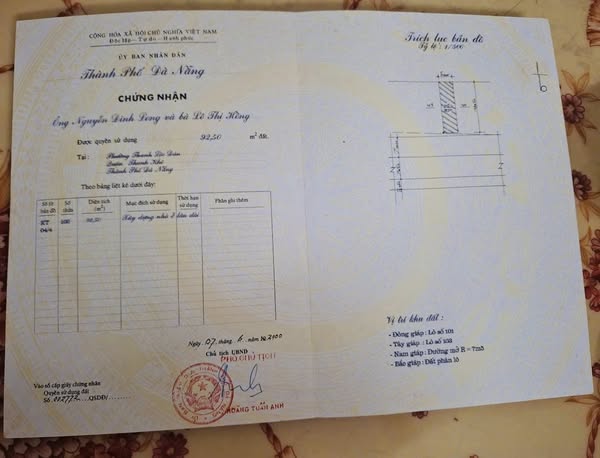 CỘNG HÒA XÃ HỘI CHỦ NGHĨA VIỆT NAM
Độc lập - Tự do - Hạnh phúc
ỦY BAN NHÂN DÂN
Thành Phố Đà Nẵng
CHỨNG NHẬN
Ông Nguyễn Đình Long và bà Lê Thị Hồng
Được quyền sử dụng 92,50 m² đất.
Tại : Phường Thanh Lộc Đán
Quận Thanh Khê
Thành Phố Đà Nẵng
Theo bảng liệt kê dưới đây:
Số tờ bản đồ Số thửa Diện tích (m²) Mục đích sử dụng Thời hạn sử dụng Phần ghi thêm
KT 04/4 92,50 Xây dựng nhà ở lâu dài
Ngày 07 tháng 6 năm 2000
Chủ tịch UBND
PHÓ CHỦ TỊCH
HOÀNG TUẤN ANH
Vào sổ cấp giấy chứng nhận
Quyền sử dụng đất
Số QSDĐ/
Trích lục bản đồ
Tỷ lệ : 1/500
Vị trí khu đất :
- Đông giáp : Lô số 101
- Tây giáp : Lô số 103
- Nam giáp : Đường mở R = 7m5
- Bắc giáp : Đất phân lô